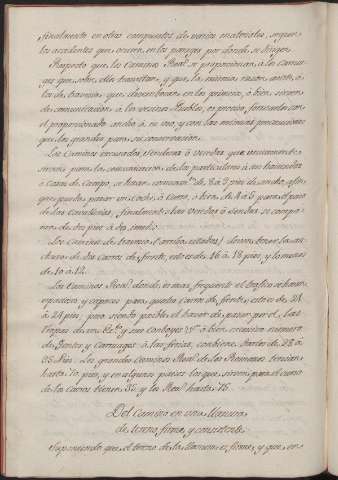 finalmente en otros compuestos de varios materiales, segun
los accidentes que ocurren, en los parages por donde se dirigen.
Respecto que los Caminos Reales se proporcionan, à los carrua-
ges que sobre ellos transitan, y que la misma razon
los de travesia, que desembocan en los primeros, ò bien, sirven
de comunicacion à los vecinos Pueblos, es preciso formarlos con
el proporcionado ancho à su uso, y con las mismas precauciones
que los grandes para su conservacion.
Los Caminos escusados, Senderos ò veredas que unicamente
sirven para la comunicacion de los particulares à sus haciendas
ò Casas de Campo, se haran de 8 à 9 pies de ancho, afin
que pueda pasar un Coche, ò Carro, ò bien de 4 à 5 para el paso
de las Cavallerias, finalmente las veredas ò sendas se compo-
nen de dos pies à dos y medio.
Los Caminos de travesia deven tener la an-
chura de dos Carros de frente, esto es de 16 à 18 pies, y lo menos
de 10 à 12.
Los Caminos Reales donde es mas frequente el trafico se haran
espaciosos y capaces para quatro Carros de frente, esto es de 21
à 24 pies, pero siendo posible el haver de pasar por el, las
tropas de un Exto. y sus Comboyes &ª. ò bien, excesivo numero
de Gentes y Carruages à las ferias, conbiene hacerlos de 28 à
35 Pies. Los grandes Caminos Reales de los Romanos tenian
hasta 70 pies, y en algunos parages los que sirven para el curso
de los Carros tienen 35 y los Reales hasta 75.
Del Camino en una llanura
de terreno firme, y consistente.
Suponiendo que el terreno de la llanura es firme, y que en-